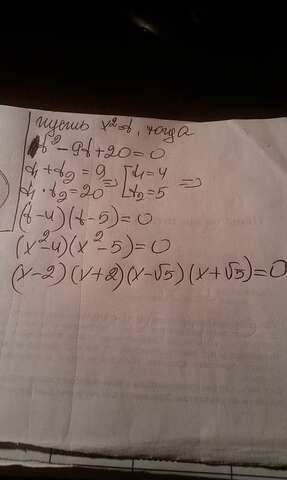 пусть x²=t, тогда
t²-9t+20=0
t₁+t₂=9 => [t₁=4 =>
t₁·t₂=20 [t₂=5
(t-4)(t-5)=0
(x²-4)(x²-5)=0
(x-2)(x+2)(x-√5)(x+√5)=0